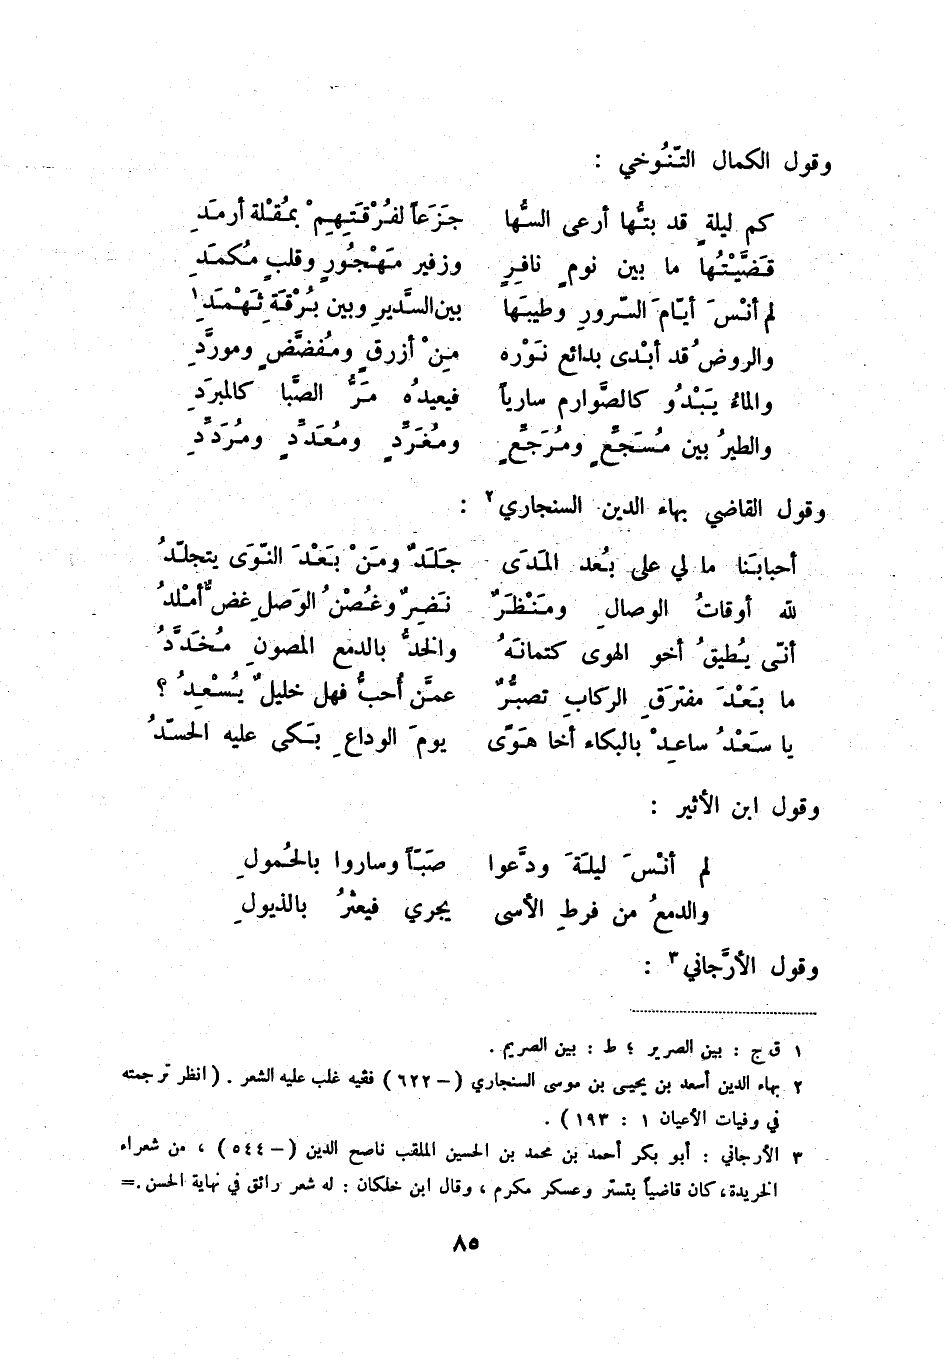 وقول الكمال التّنُوخي :
كم ليلةٍ قد بتُّها أرعى السُّها جَزَعاً لفُرْقَتِهِمْ بمُقْلة أرمَدِ
قَضَّيْتُها ما بين نومٍ نافرٍ وزفير مَهْجُورٍ وقلبٍ مُكمَدِ
لم أنْسَ أيّامَ السّرورِ وطيبَها بين السَّديرِ وبين بُرْقَةِ ثَهْمَدِ١
والروضُ قد أبْدى بدائع نَوْره مِنْ أزرقٍ ومُفضَّضٍ ومورَّدِ
والماءُ يَبْدُو كالصَّوارم سارياً فيعيدُه مَرُّ الصَّبا كالمبرَدِ
والطيرُ بين مُسَجِّعٍ ومُرَجِّعٍ ومُغَرِّدٍ ومُعَدِّدٍ ومُرَدِّدِ
وقول القاضي بهاء الدين السنجاري٢ :
أحبابَنا ما لي على بُعد المَدَى جَلَدٌ ومَنْ بَعْدَ النّوَى يتجلّدُ
لله أوقاتُ الوصالِ ومَنْظَرٌ نَضِرٌ وغُصْنُ الوَصلِ غضٌّ أمْلدُ
أنّى يُطيقُ أخو الهوى كتمانَهُ والخدُّ بالدمع المصونِ مُخَدَّدُ
ما بَعْدَ مفترَقِ الركابِ تصبُّرٌ عمَّن أُحبُّ فهل خليلٌ يُسْعِدُ ؟
يا سَعْدُ ساعِدْ بالبكاء أخا هَوًى يومَ الوداعِ بَكى عليه الحسّدُ
وقول ابن الأثير :
لم أنْسَ ليلَةَ ودَّعوا صَبّاً وساروا بالحُمولِ
والدمعُ من فرطِ الأسى يجري فيعثرُ بالذيولِ
وقول الأرَّجاني٣ :
١ ق ج : بين الصرير ؛ ط : بين الصريم .
٢ بهاء الدين أسعد بن يحيى بن موسى السنجاري (– ٦٢٢) فقيه غلب عليه الشعر . (انظر ترجمته
في وفيات الأعيان ١ : ١٩٣) .
٣ الأرجاني : أبو بكر أحمد بن محمد بن الحسين الملقب ناصح الدين (– ٥٤٤) ، من شعراء
الخريدة، كان قاضياً بتستر وعسكر مكرم ، وقال ابن خلكان : له شعر رائق في نهاية الحسن .=
٨٥